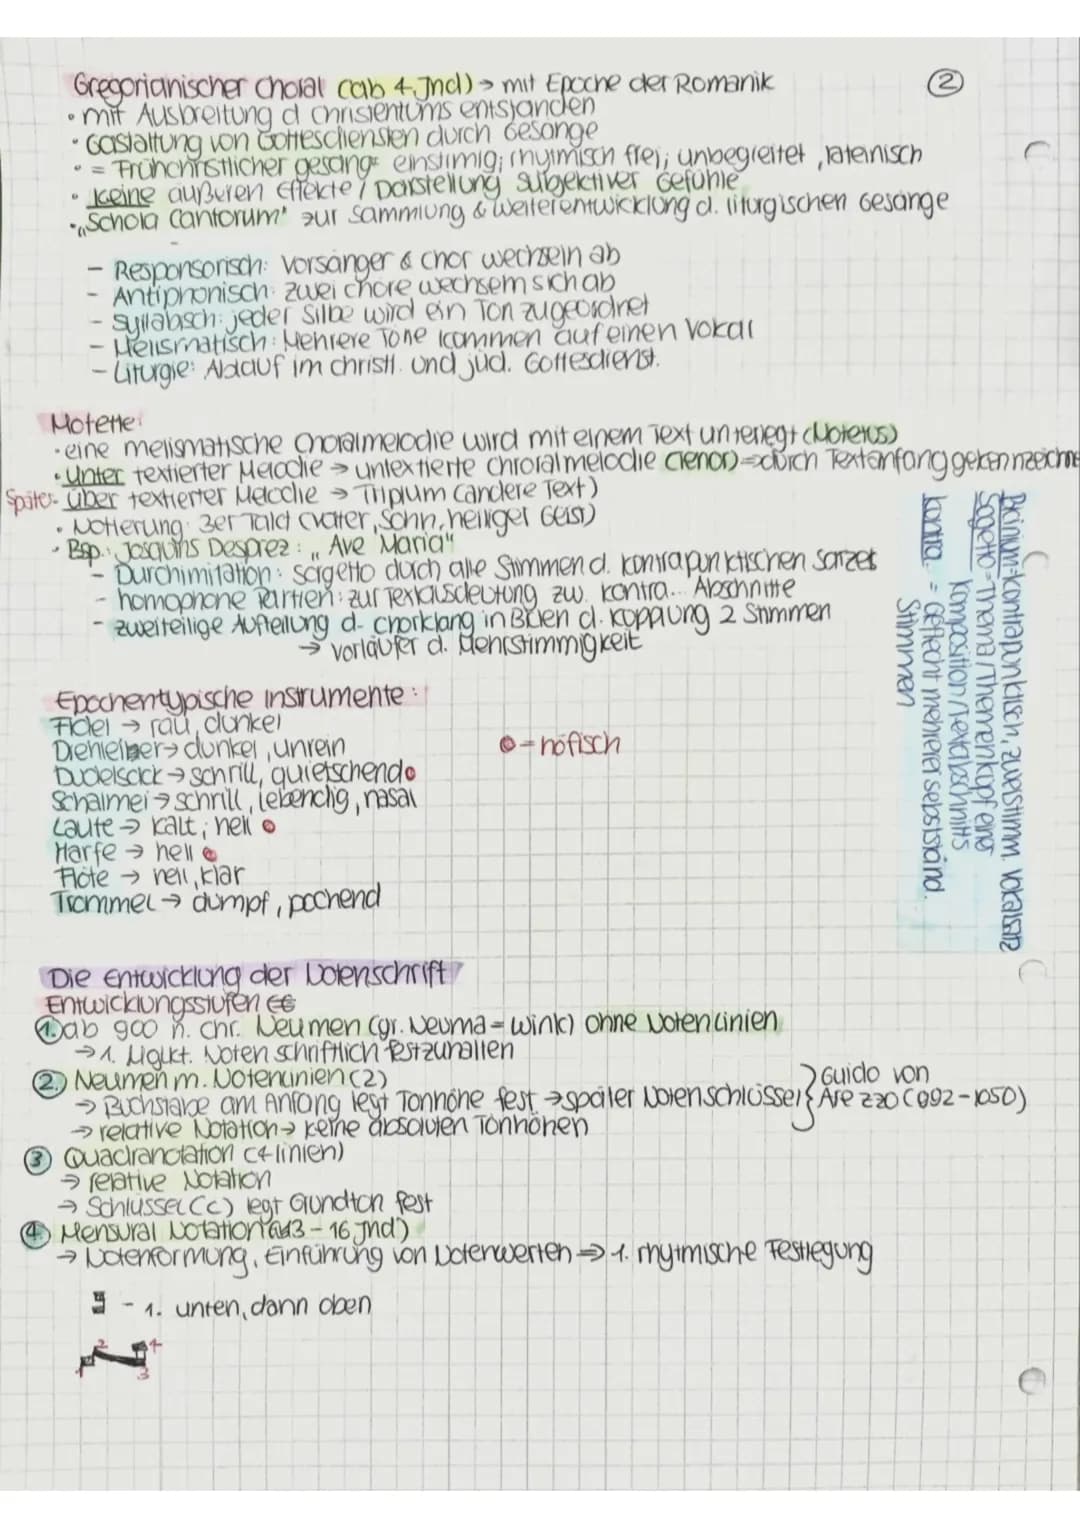 Gregorianischer Choral (ab 4. Jhd) → mit Epoche der Romanik
②
• mit Ausbreitung d Christentums entstanden
• Gastaltung von Gottesdiensten durch Gesänge
• = Frühchristlicher gesänge einstimig; rhytmisch frei; unbegleitet, lateinisch
• keine äußeren Effekte / Darstellung subjektiver Gefühle
• „Schola Cantorum" zur Sammlung & Weiterentwicklung d. liturgischen Gesänge
- Responsorisch: Vorsänger & Chor wechseln ab
- Antiphonisch: zwei chöre wechseln sich ab
- Syllabisch: jeder Silbe wird ein Ton zugeordnet
- Melismatisch: Mehrere Töne kommen auf einen Vokal
- Liturgie: Ablauf im christl. und jüd. Gottesdienst.
Motette:
• eine melismatische Choralmelodie wird mit einem Text unterlegt (Motetus)
• Unter textierter Melodie → untextierte chroralmelodie (Tenor) ⇒ durch Textanfang gekennzeichne
Später- über textierter Melodie → Triplum (andere Text)
• Notierung: 3er Takt (Vater, Sohn, heiliger Geist)
• Bsp.: Josquins Desprez: „Ave Maria"
- Durchimitation: sorgetto durch alle Stimmen d. kontrapunktischen Satzes
- homophone Partien: zur Textausdeutung zw. kontra... Abschnitte
- zweiteilige Aufteilung d. chorklang in Bicien d. Kopplung 2 Stimmen
→ vorläufer d. Mehrstimmigkeit
Bicinium=kontrapunktisch, zweistimm. Vokalsatz
Sogetto=Thema/Themenkopf einer
Komposition/Textabschnitts
kontra. = Geflecht mehrerer selbstständ.
Stimmen
Epochentypische Instrumente:
Fidel → rau, dunkel
Drehleiher → dunkel, unrein
● = höfisch
Dudelsack → schrill, quietschend ●
Schalmei → schrill, lebendig, nasal
Laute → kalt; hell ●
Harfe → hell ●
Flöte → hell, klar
Trommel → dumpf, pochend
Die Entwicklung der Notenschrift
Entwicklungsstufen
1. ab 900 n. Chr. Neumen (gr. Neuma = wink) ohne Notenlinien
→ 1. Möglkt. Noten schriftlich festzuhalten
2. Neumen m. Notenlinien (2)
→ Buchstabe am Anfang legt Tonhöhe fest → später Notenschlüssel } Guido von Arezzo (992-1050)
→ relative Notation → keine absoluten Tonhöhen
3 Quadranotation (4 linien)
→ relative Notation
→ Schlüssel (c) legt Grundton fest
4. Mensural Notation (13 - 16 Jhd)
→ Notenformung, Einführung von Notenwerten ⇒ 1. rhytmische Festlegung
- 1. unten, dann oben
1 2 3 4